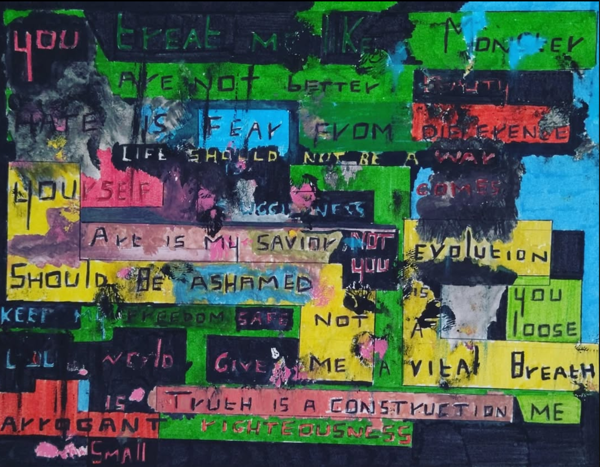 YOU treat me lIKe A MONSter
Are NOt better BeAUty
HATE IS FEAr FrOM DIFFERENCE
LIFE SHOULD NOT BE A WAr
YOUrSELF COMES
UGGLINESS
Art IS My SAVIOr, NOT EVOLUTION
YOU
SHOULD BE ASHAMED IS YOU
KEEP MY FREEDOM SAFE NOT A LOOSE
WOrlD GIVE ME A VITAl BREATH
IS TrUTH IS A CONSTrUCTION ME
ArrOGANT rIGHTEOUSNESS
SMAll